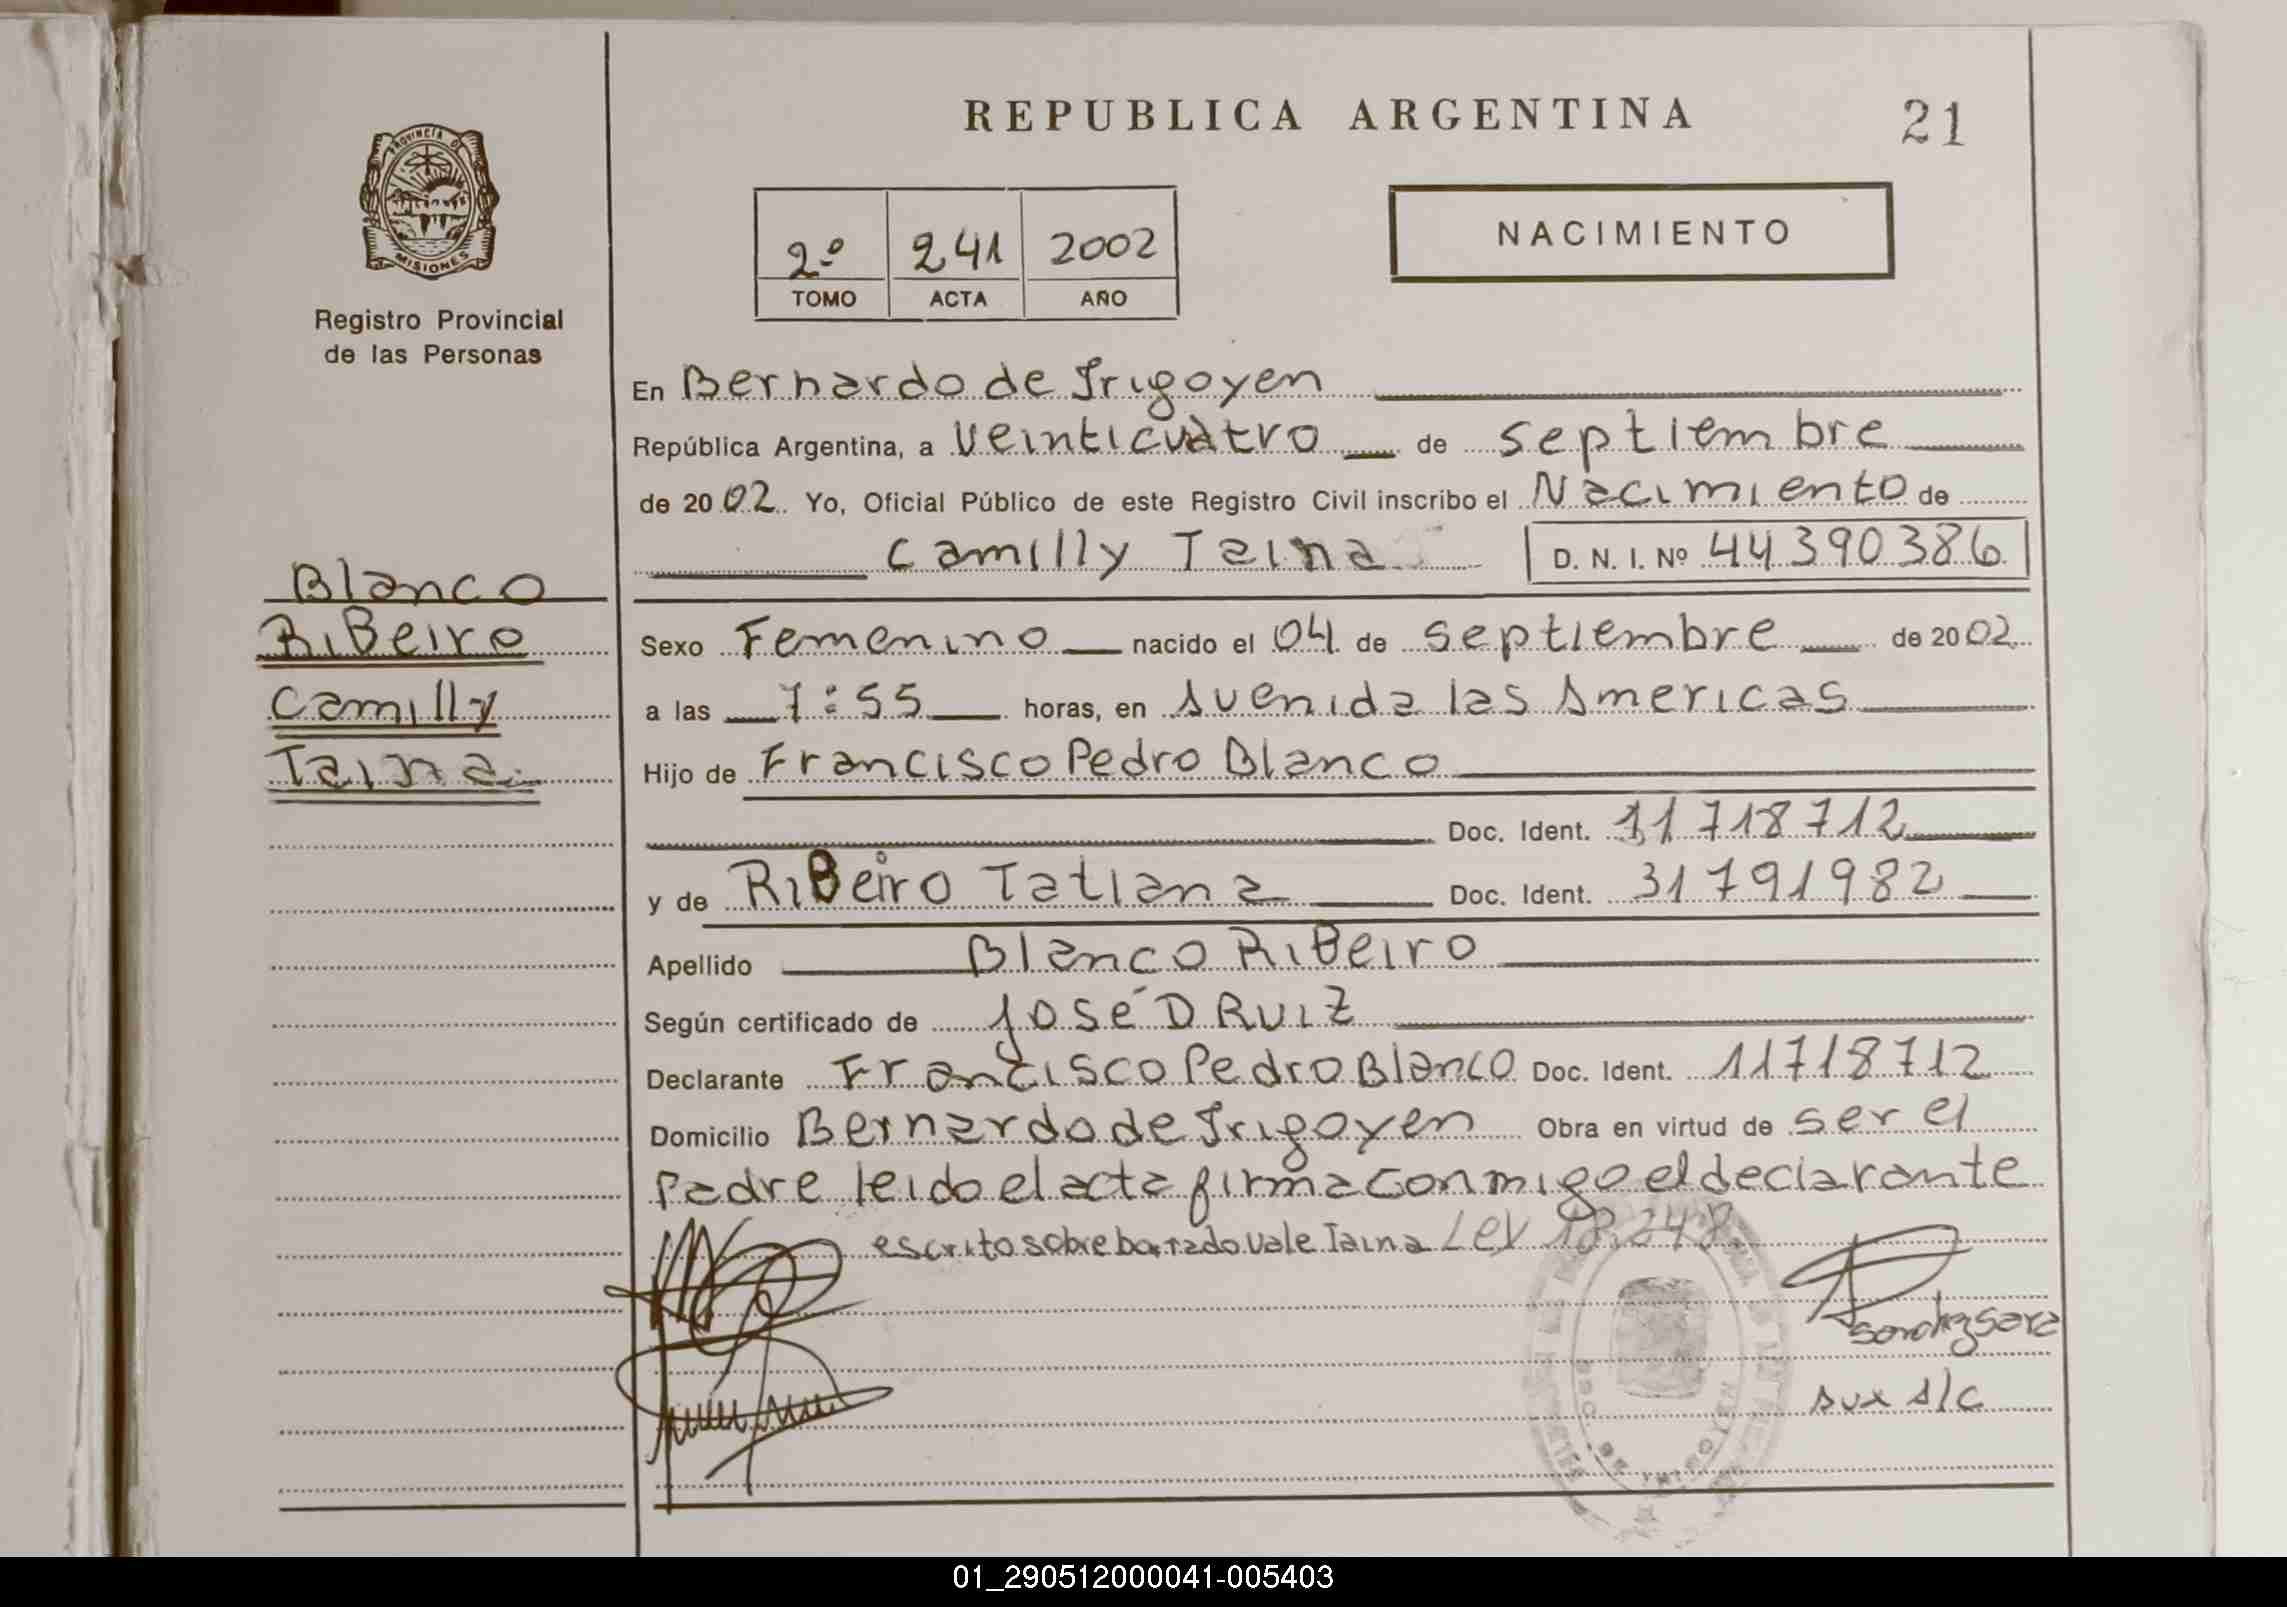 REPUBLICA ARGENTINA
21
PROVINCIA DE
MISIONES
Registro Provincial
de las Personas
2º 241 2002
TOMO ACTA AÑO
NACIMIENTO
En Bernardo de Irigoyen
República Argentina, a veinticuatro de septiembre
de 2002. Yo, Oficial Público de este Registro Civil inscribo el Nacimiento de
Camilly Taina D. N. I. Nº 44390386
Blanco
RiBeiro
Camilly
Taina
Sexo Femenino nacido el 04 de septiembre de 2002
a las 7:55 horas, en Avenida las Americas
Hijo de Francisco Pedro Blanco
Doc. Ident. 11718712
y de RiBeiro Tatiana Doc. Ident. 31791982
Apellido Blanco RiBeiro
Según certificado de José D Ruiz
Declarante Francisco Pedro Blanco Doc. Ident. 11718712
Domicilio Bernardo de Irigoyen Obra en virtud de ser el
Padre leido el acta firma conmigo el declarante
escrito sobre borrado vale Taina Ley 18.248
sara
aux a/c
01_290512000041-005403